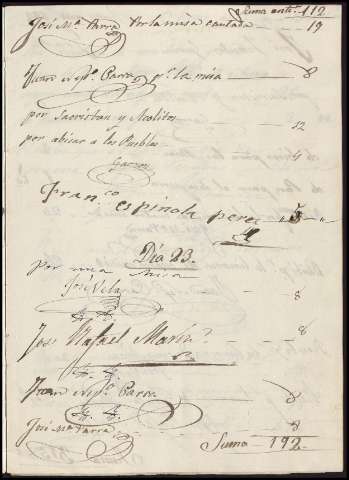 Suma antr. 112
José Mª Parra Por la misa cantada - - - 19
Juan Npº. Parra pr. la misa - - 8
por Sacristan y Acolitos - - - 12
por abisar a los Pueblos - - - 4
Garcia
Franco. espinola perez " 5 - "
Dia 23.
por una misa
José Vela - - 8
Jose Rafael Marin - - 8
Juan Npº. Parra - - 8
José Mª Parra - - 8
Suma 192.